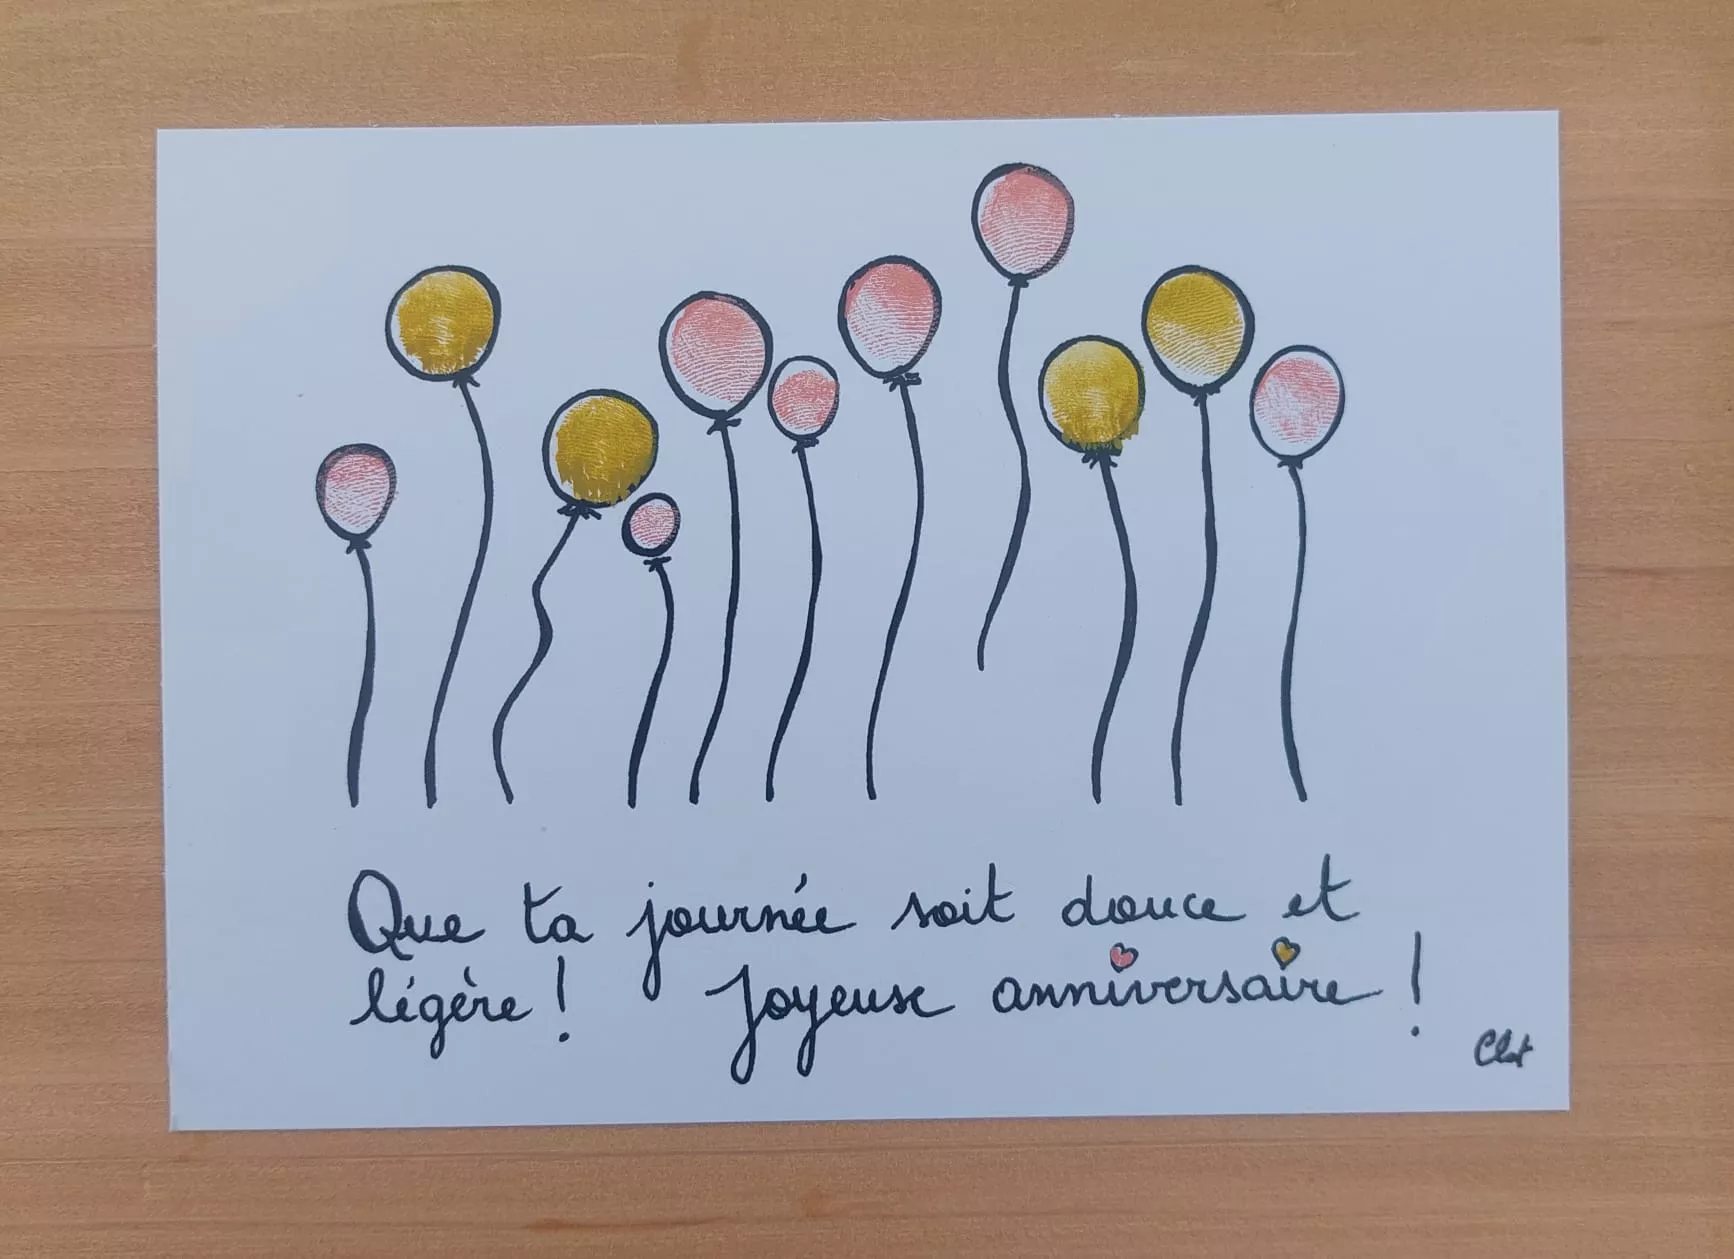 Que ta journée soit douce et
légère ! Joyeuse anniversaire !
Clot